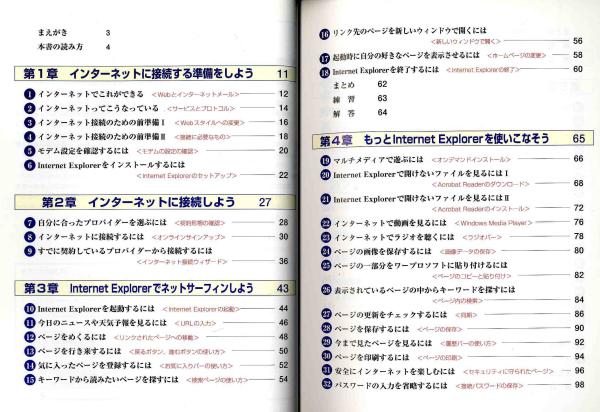 まえがき 3
本書の読み方 4
第1章 インターネットに接続する準備をしよう 11
1 インターネットでこれができる <Webとインターネットメール> 12
2 インターネットってこうなっている <サービスとプロトコル> 14
3 インターネット接続のための前準備Ⅰ <Webスタイルへの変更> 16
4 インターネット接続のための前準備Ⅱ <接続に必要なもの> 18
5 モデム設定を確認するには <モデムの設定の確認> 20
6 Internet Explorerをインストールするには
<Internet Explorerのセットアップ> 22
第2章 インターネットに接続しよう 27
7 自分に合ったプロバイダーを選ぶには <契約形態の確認> 28
8 インターネットに接続するには <オンラインサインアップ> 30
9 すでに契約しているプロバイダーから接続するには
<インターネット接続ウィザード> 36
第3章 Internet Explorerでネットサーフィンしよう 43
10 Internet Explorerを起動するには <Internet Explorerの起動> 44
11 今日のニュースや天気予報を見るには <URLの入力> 46
12 ページをめくるには <リンクされたページへの移動> 48
13 ページを行き来するには <戻るボタン、進むボタンの使い方> 50
14 気に入ったページを登録するには <お気に入りバーの使い方> 52
15 キーワードから読みたいページを探すには <検索ページの使い方> 54
16 リンク先のページを新しいウィンドウで開くには
<新しいウィンドウで開く> 56
17 起動時に自分の好きなページを表示させるには <ホームページの変更> 58
18 Internet Explorerを終了するには <Internet Explorerの終了> 60
まとめ 62
練習 63
解答 64
第4章 もっとInternet Explorerを使いこなそう 65
19 マルチメディアで遊ぶには <オンデマンドインストール> 66
20 Internet Explorerで開けないファイルを見るにはⅠ
<Acrobat Readerのダウンロード> 68
21 Internet Explorerで開けないファイルを見るにはⅡ
<Acrobat Readerのインストール> 72
22 インターネットで動画を見るには <Windows Media Player> 76
23 インターネットでラジオを聴くには <ラジオバー> 78
24 ページの画像を保存するには <画像データの保存> 80
25 ページの一部分をワープロソフトに貼り付けるには
<ページのコピーと貼り付け> 82
26 表示されているページの中からキーワードを探すには
<ページ内の検索> 84
27 ページの更新をチェックするには <同期> 86
28 ページを保存するには <ページの保存> 90
29 今まで見たページを見るには <履歴バーの使い方> 92
30 ページを印刷するには <ページの印刷> 94
31 安全にインターネットを楽しむには <セキュリティに守られたページ> 96
32 パスワードの入力を省略するには <接続パスワードの保存> 98